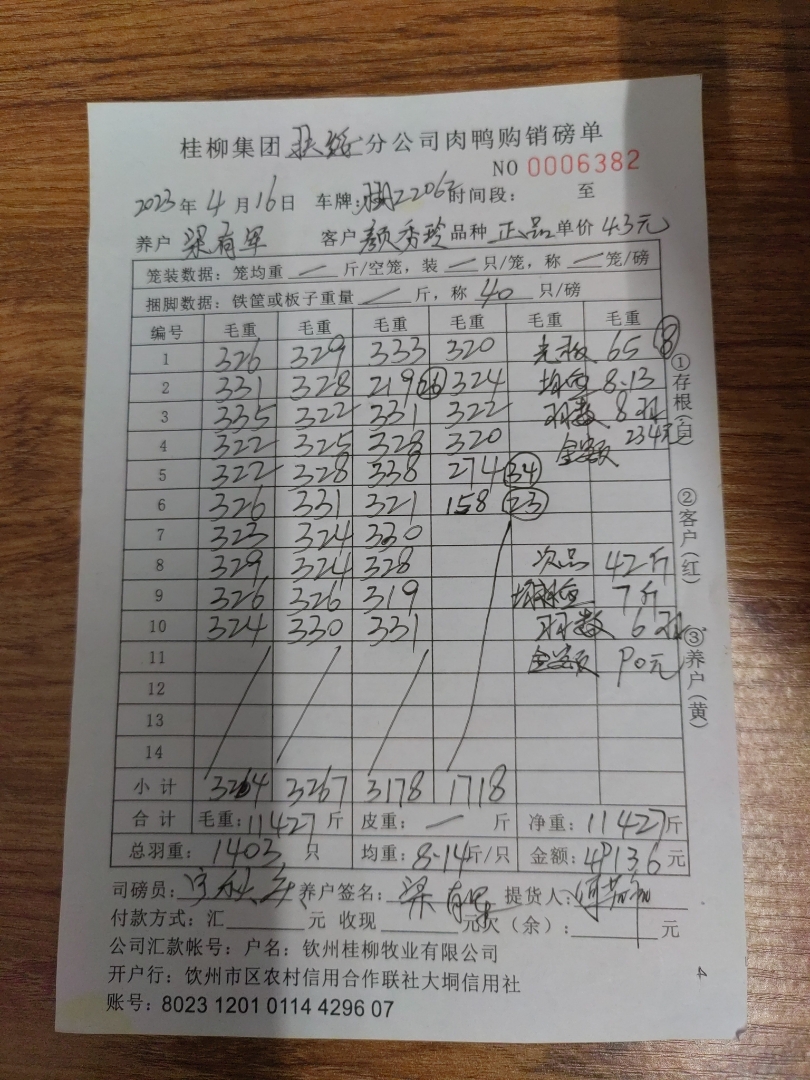 桂柳集团 扶绥 分公司肉鸭购销磅单
NO 0006382
2023年 4月16日 车牌: 时间段: 至
养户 梁有军 客户 颜香玲 品种 正品 单价 4.3元
笼装数据：笼均重 — 斤/空笼，装 — 只/笼，称 — 笼/磅
捆脚数据：铁筐或板子重量 — 斤，称 40 只/磅
编号 毛重 毛重 毛重 毛重 毛重 毛重
1 326 329 333 320 65 8
2 331 328 219 26 324 均重 8.13
3 335 322 331 322 羽数 8羽
4 322 325 328 320 金额 234元
5 322 328 338 274 34
6 326 331 321 158 23
7 323 324 330
8 329 324 328 次品 42斤
9 326 326 319 均重 7斤
10 324 330 331 羽数 6羽
11 金额 90元
12
13
14
小计 3264 3267 3178 1718
合计 毛重: 11427 斤 皮重: — 斤 净重: 11427斤
总羽重: 1403 只 均重: 8.14斤/只 金额: 49136 元
司磅员: 养户签名: 梁有军 提货人:
付款方式：汇 元 收现 元欠（余）: 元
公司汇款帐号：户名：钦州桂柳牧业有限公司
开户行：钦州市区农村信用合作联社大垌信用社
账号：8023 1201 0114 4296 07
①存根（白）
②客户（红）
③养户（黄）
4